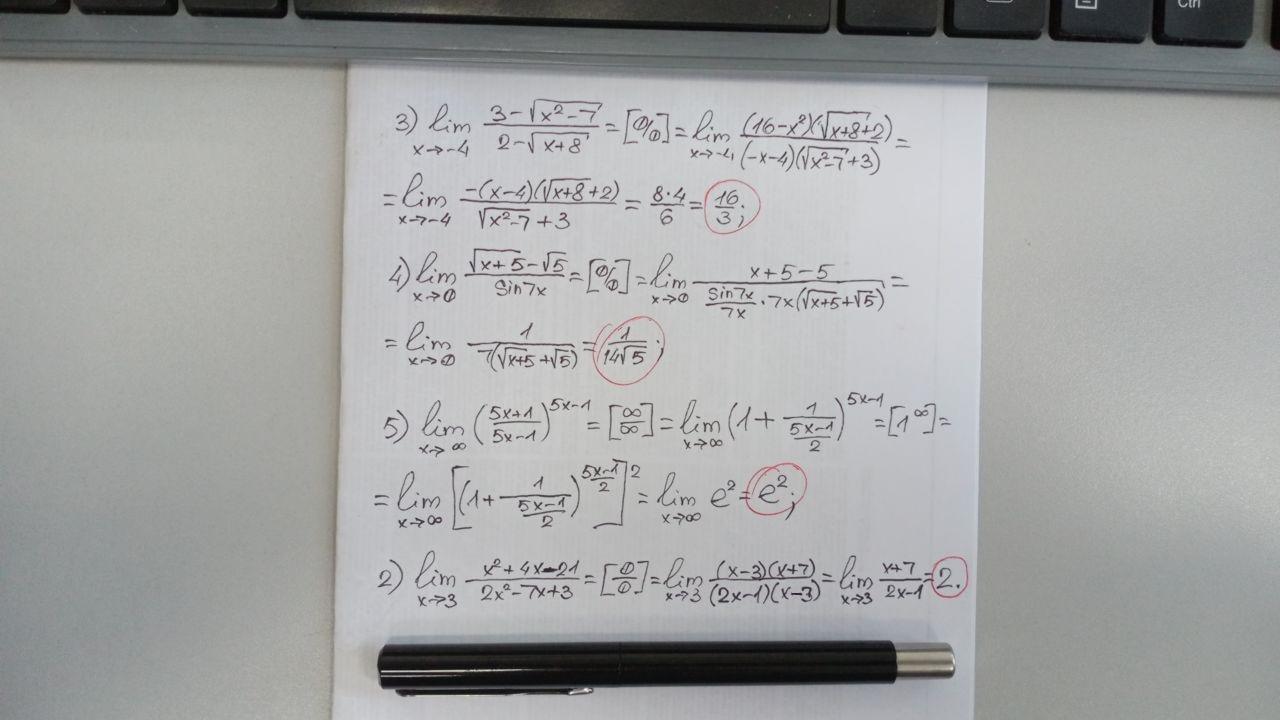 Ctrl
3) lim x→-4 (3-√(x²-7))/(2-√(x+8)) = [0/0] = lim x→-4 ((16-x²)(√(x+8)+2))/((-x-4)(√(x²-7)+3)) =
= lim x→-4 (-(x-4)(√(x+8)+2))/(√(x²-7)+3) = (8·4)/6 = 16/3;
4) lim x→0 (√(x+5)-√5)/(sin7x) = [0/0] = lim x→0 (x+5-5)/((sin7x)/(7x)·7x(√(x+5)+√5)) =
= lim x→0 1/(7(√(x+5)+√5)) = 1/(14√5);
5) lim x→∞ ((5x+1)/(5x-1))^(5x-1) = [∞/∞] = lim x→∞ (1+1/((5x-1)/2))^(5x-1) = [1^∞] =
= lim x→∞ [(1+1/((5x-1)/2))^((5x-1)/2)]² = lim x→∞ e² = e²;
2) lim x→3 (x²+4x-21)/(2x²-7x+3) = [0/0] = lim x→3 ((x-3)(x+7))/((2x-1)(x-3)) = lim x→3 (x+7)/(2x-1) = 2.